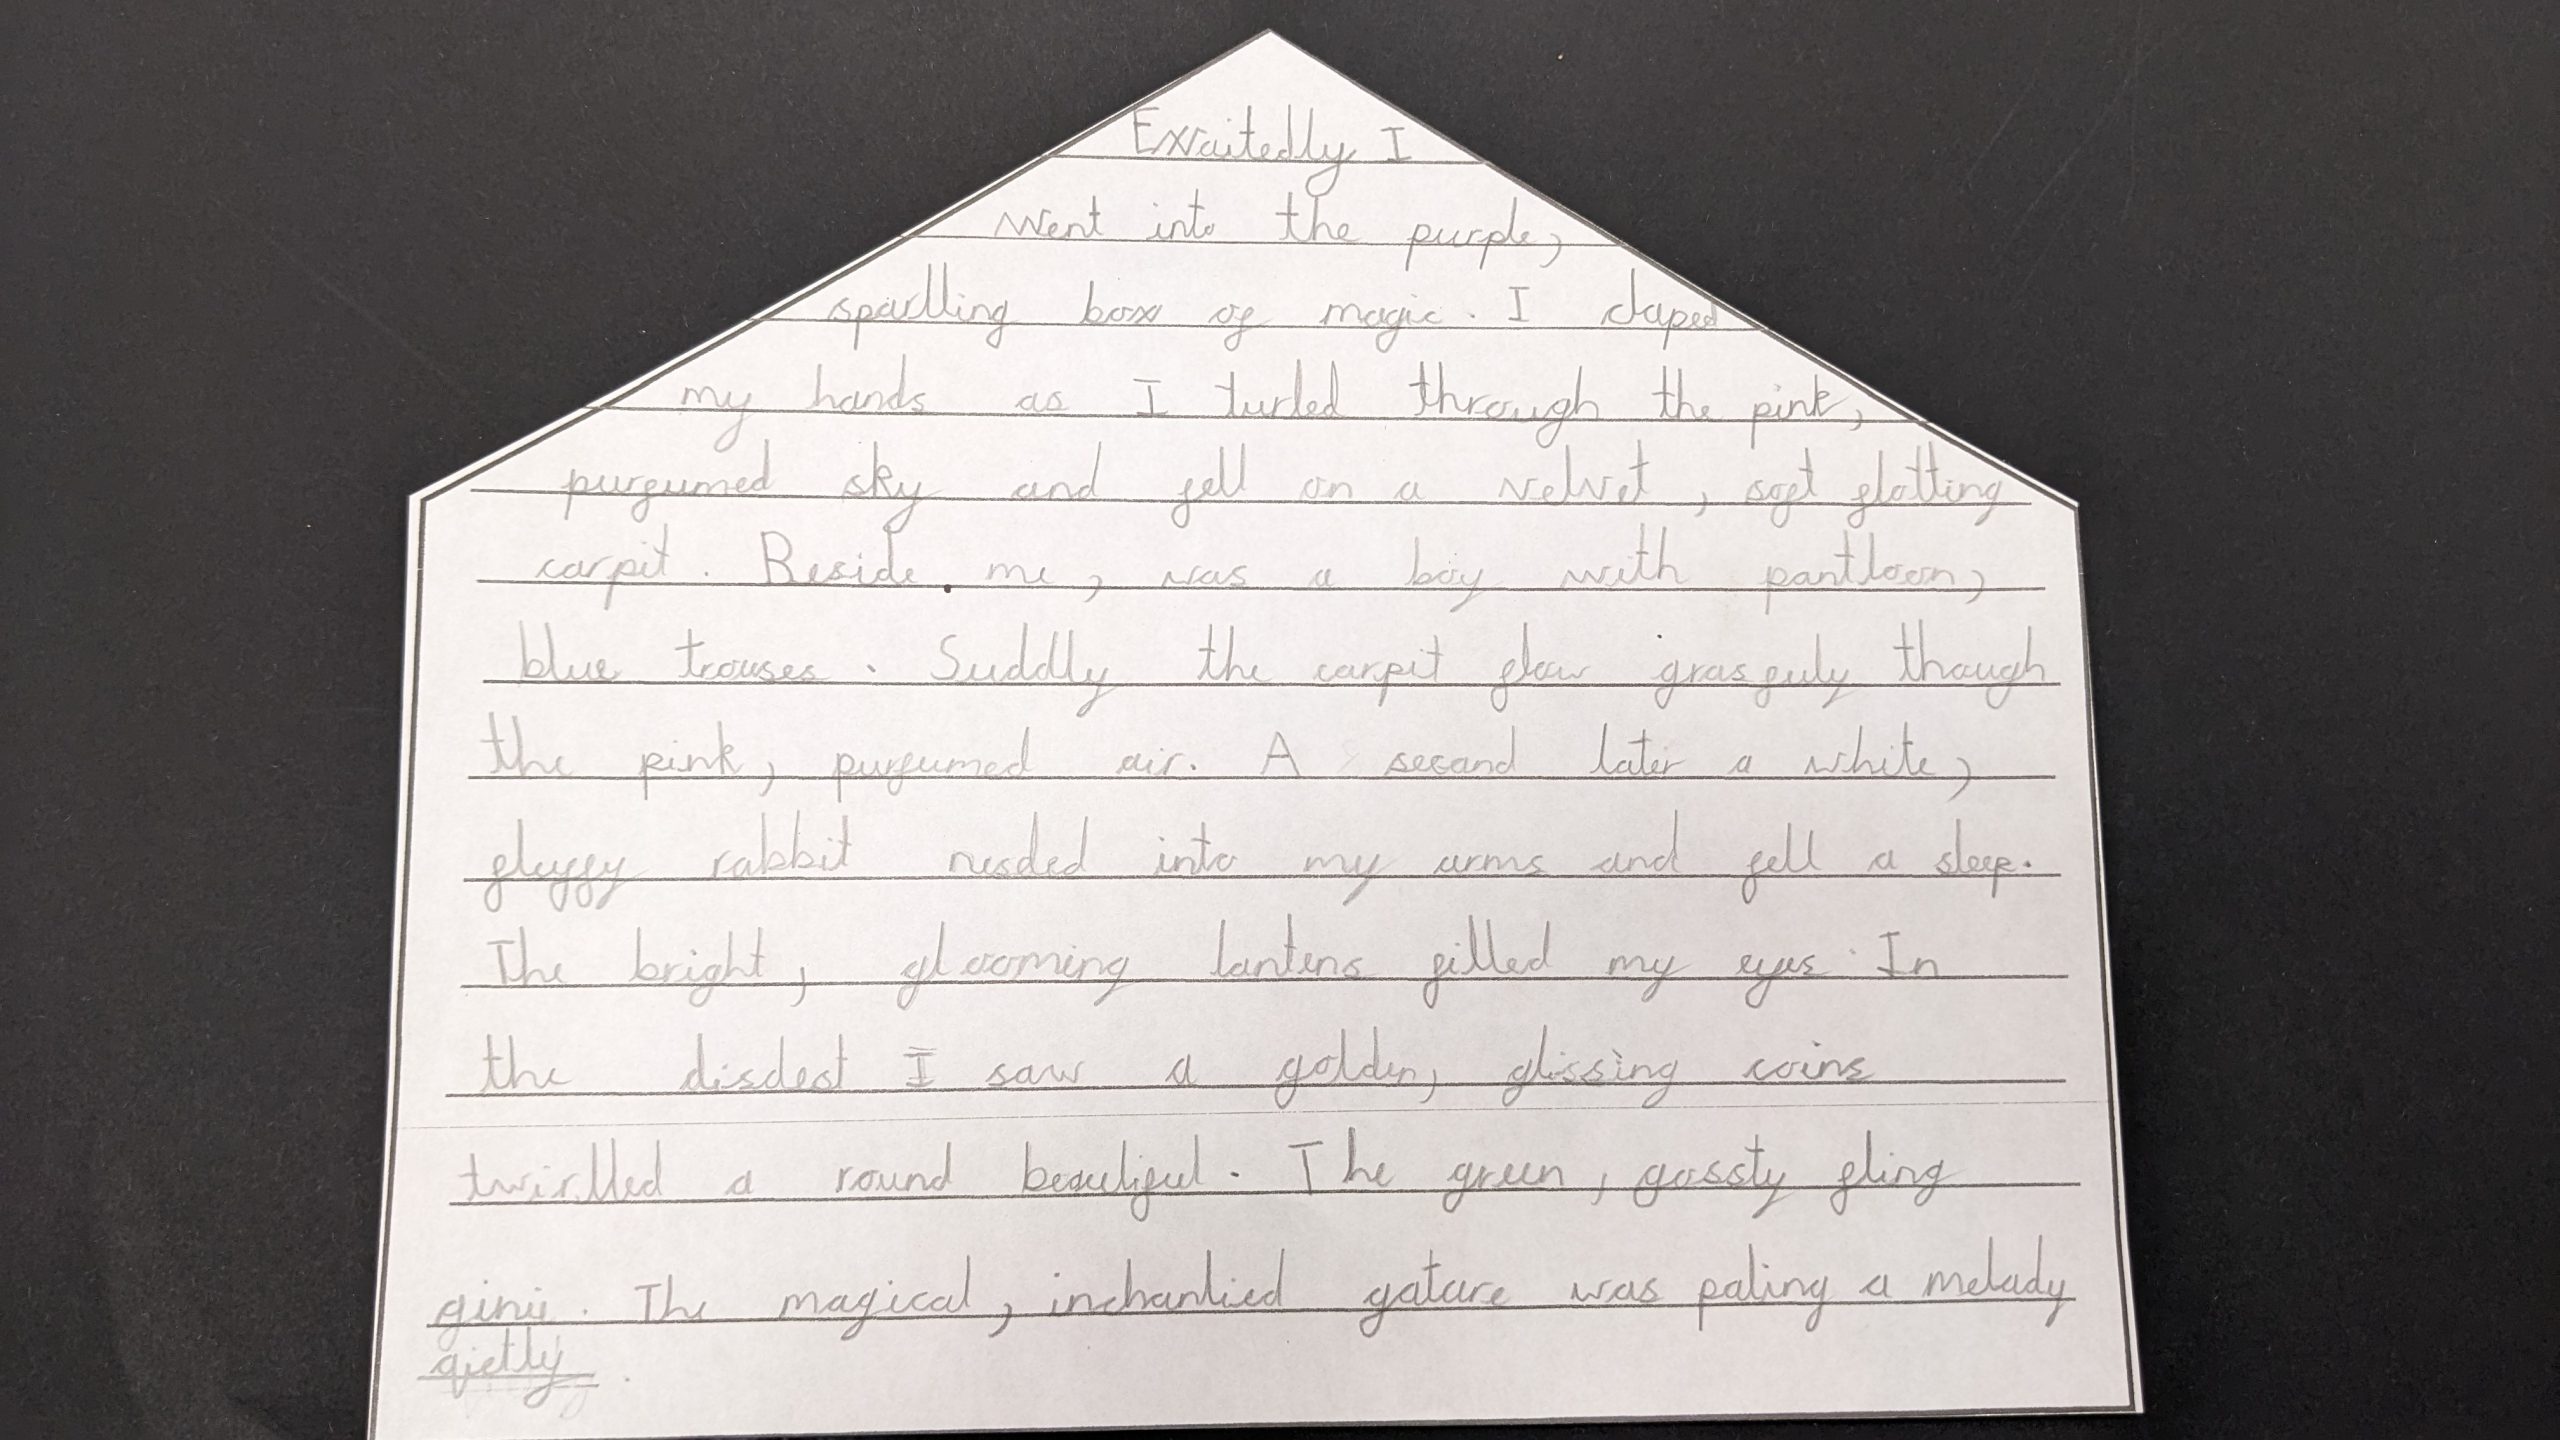 Exraitedly I
went into the purple,
sparlling box of magic. I claped
my hands as I turled through the pink,
purfumed sky and fell on a velvet, soft flotting
carpit. Beside me, was a boy with pantloon,
blue trouses. Suddly the carpit flow grasfuly though
the pink, purfumed air. A second later a white,
fluffy rabbit nusded into my arms and fell a sleep.
The bright, glooming lantens filled my eyes. In
the disdest I saw a golden, glissing coins
twirlled a round beautiful. The green, gossty fling
ginii. The magical, inchantied gature was paling a melady
qietly.